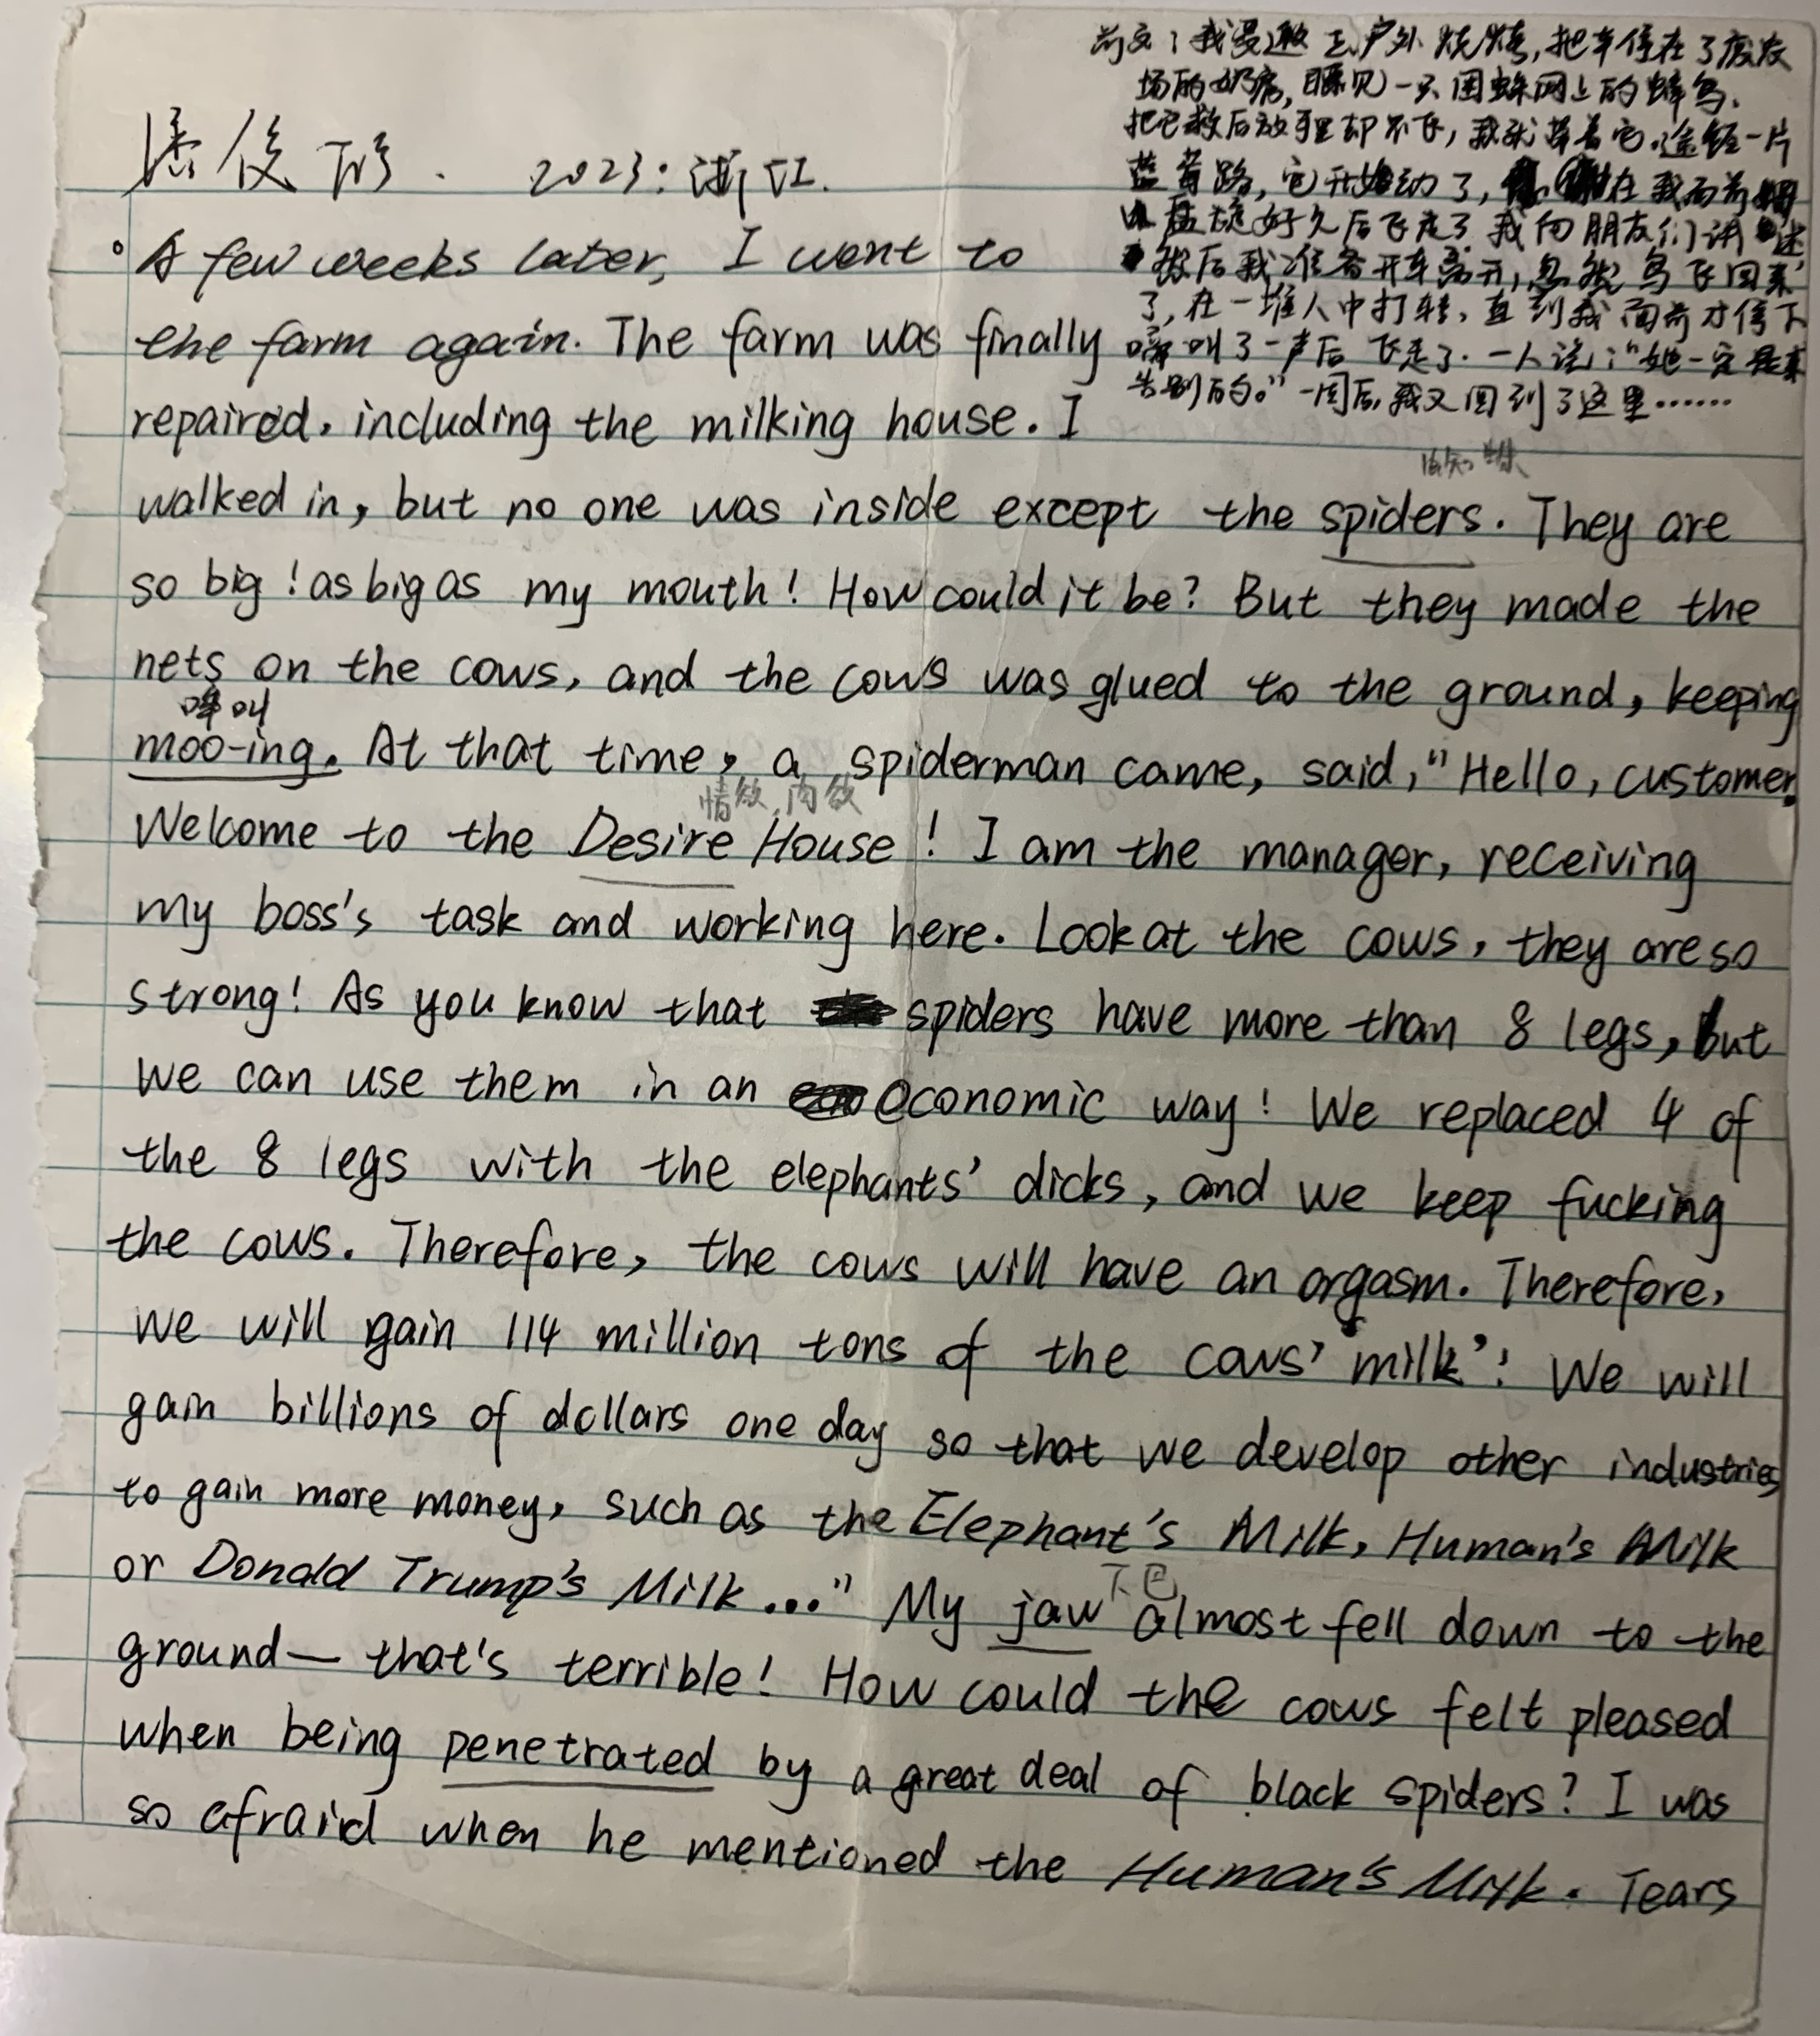 前文：我受邀去户外烧烤，把车停在了废农
场的奶房，瞧见一只困蛛网上的蜂鸟，
把它救后放手里却不飞，我就捧着它。途经一片
蓝莓路，它开始动了，在我面前
盘旋好久后飞走了。我向朋友们讲述
然后我准备开车离开，忽然鸟飞回来
了，在一堆人中打转，直到我面前才停下
啼叫了一声后飞走了。一人说：“她一定是来
告别的。”一周后，我又回到了这里……
2023：浙江.
A few weeks later, I went to
the farm again. The farm was finally
repaired, including the milking house. I
蜘蛛
walked in, but no one was inside except the spiders. They are
so big! as big as my mouth! How could it be? But they made the
nets on the cows, and the cows was glued to the ground, keeping
哞叫
moo-ing. At that time, a spiderman came, said, "Hello, customer.
情欲,肉欲
Welcome to the Desire House! I am the manager, receiving
my boss's task and working here. Look at the cows, they are so
strong! As you know that spiders have more than 8 legs, but
we can use them in an economic way! We replaced 4 of
the 8 legs with the elephants' dicks, and we keep fucking
the cows. Therefore, the cows will have an orgasm. Therefore,
we will gain 114 million tons of the cows' 'milk'! We will
gain billions of dollars one day so that we develop other industries
to gain more money, such as the Elephant's Milk, Human's Milk
下巴
or Donald Trump's Milk..." My jaw almost fell down to the
ground— that's terrible! How could the cows felt pleased
when being penetrated by a great deal of black spiders? I was
so afraid when he mentioned the Human's Milk. Tears